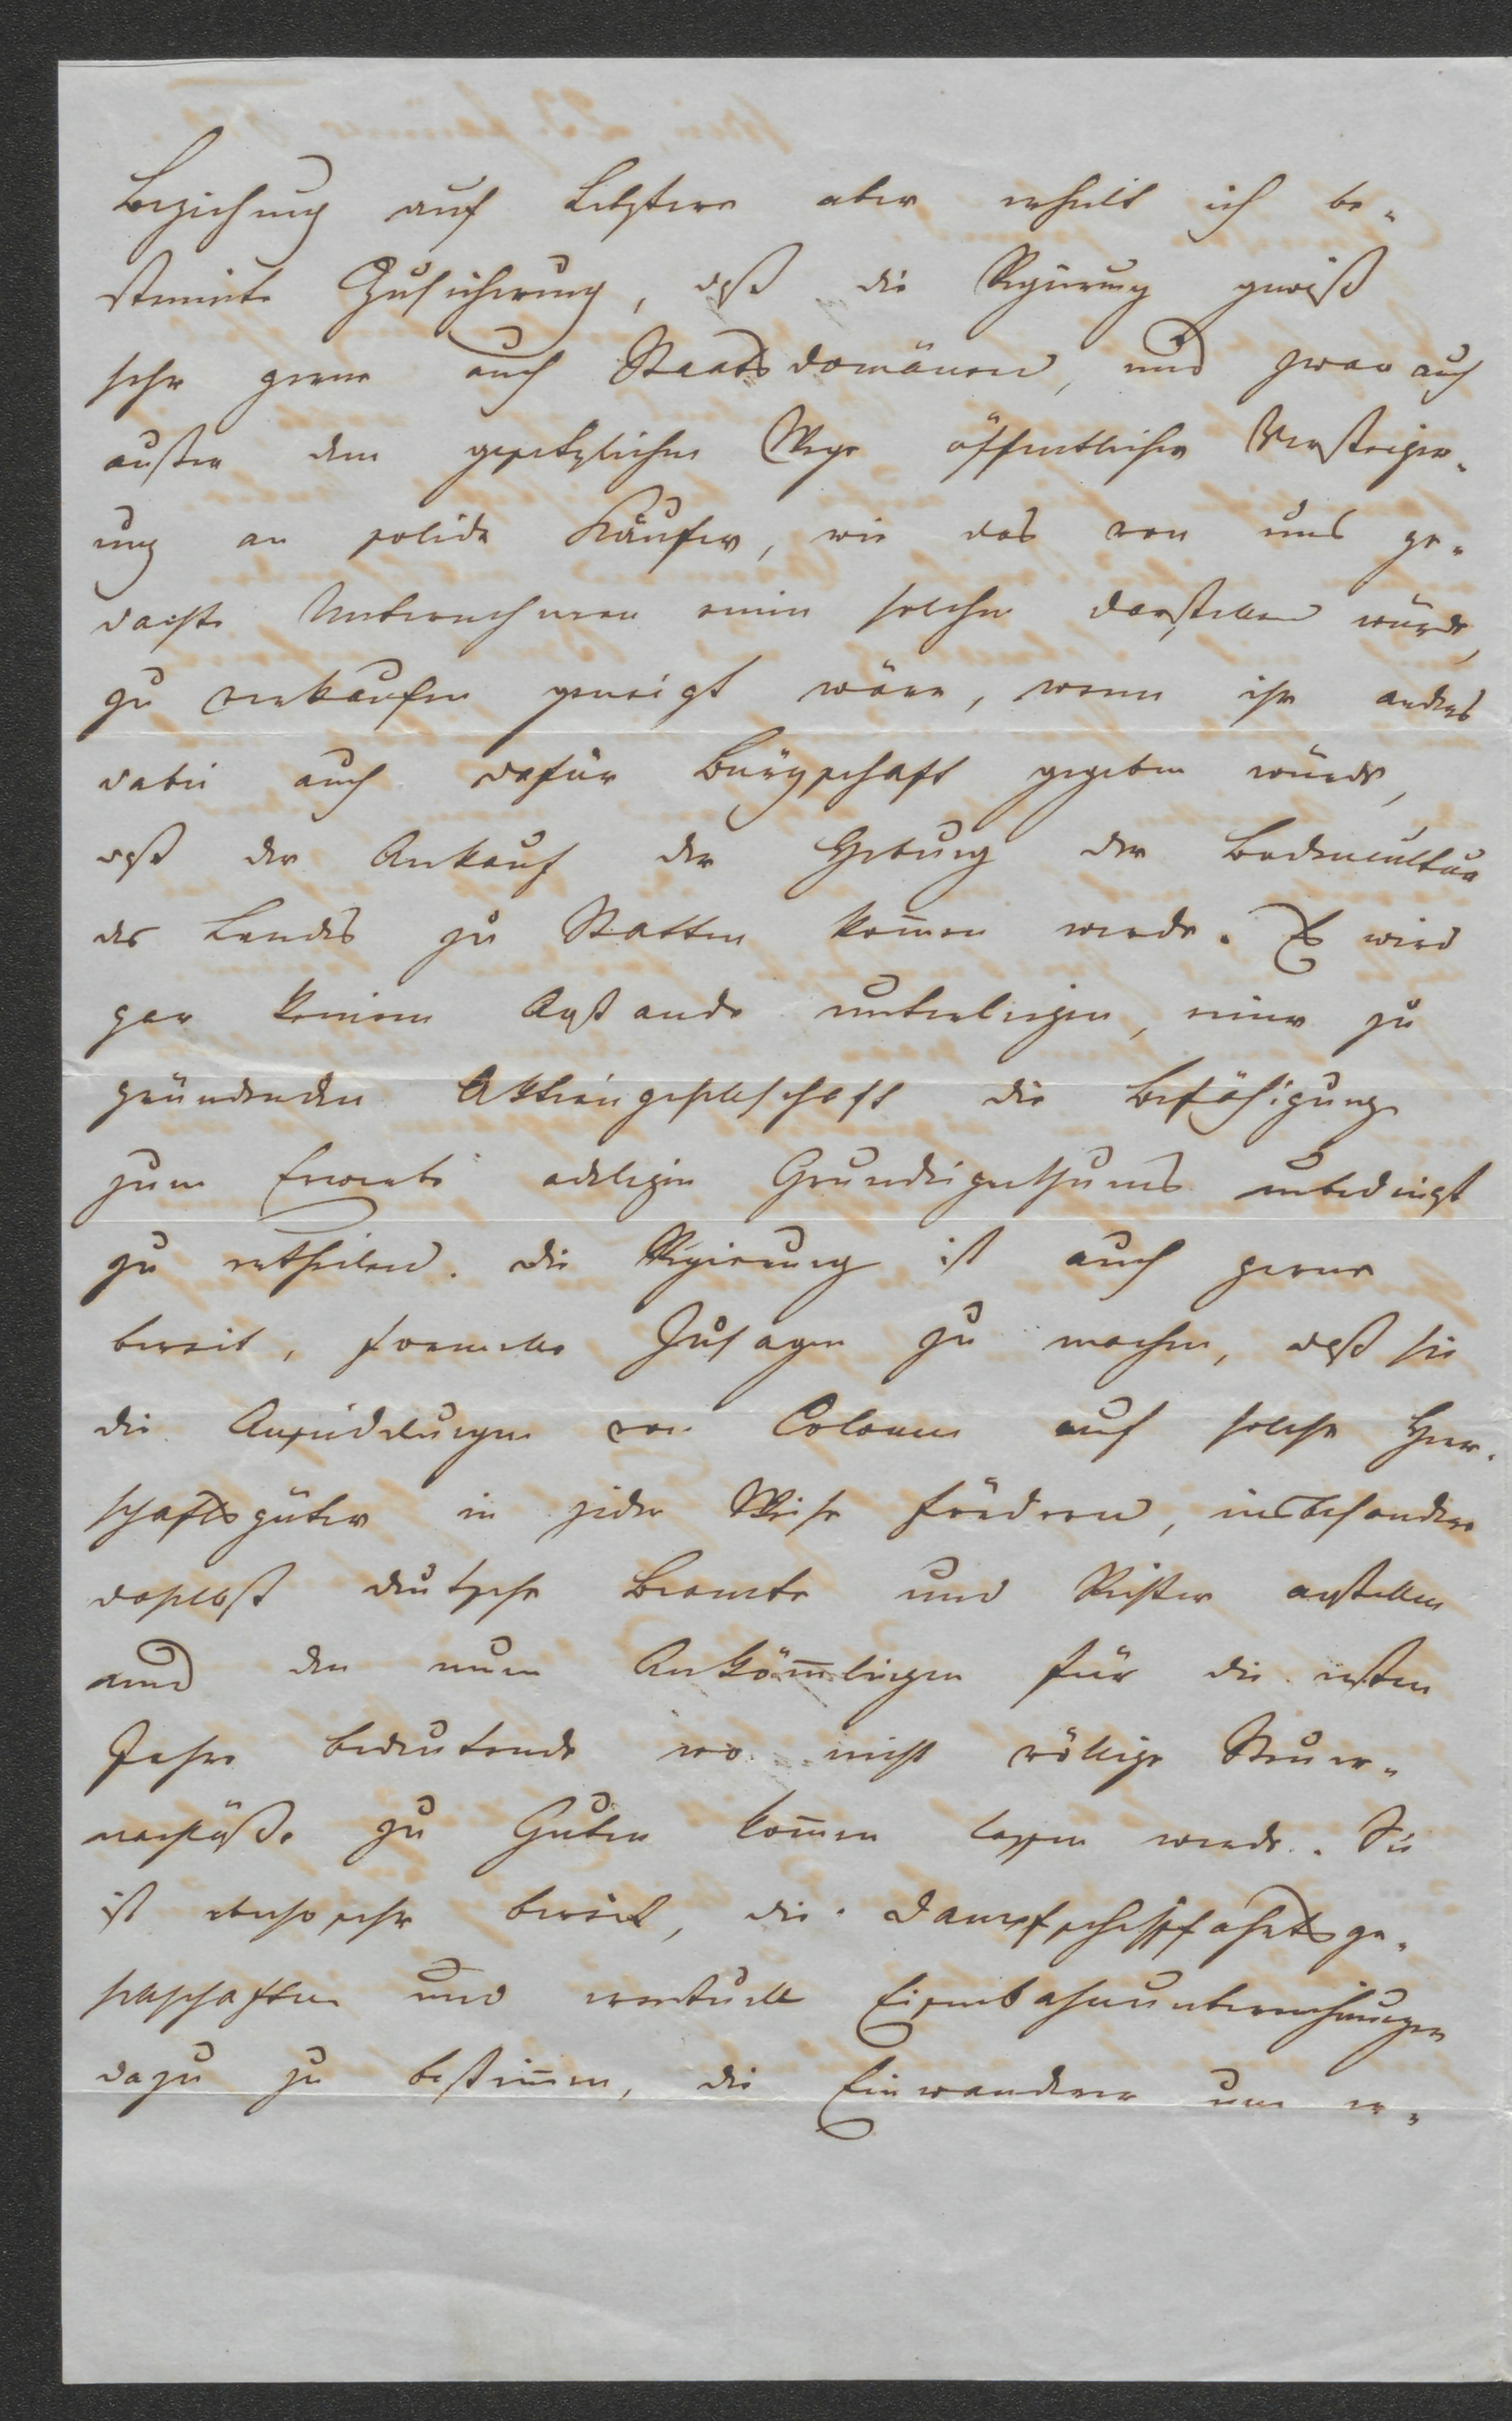 Beziehung auf Letztere aber erhielt ich be-
stimte Zusicherung, daß die Regierung gewiß
sehr gerne auch Staatsdomänen, und zwar auch
außer dem gesetzlichen Wege öffentlicher Versteiger-
ung an solide Käufer, wie das von uns ge-
dachte Unternehmen einen solchen darstellen würde,
zu verkaufen geneigt wäre, wenn ihr anders
dabei auch dafür Bürgschaft gegeben würde,
daß der Ankauf der Hebung der Bodencultur
des Landes zu Statten komen werde. Es wird
gar keinem Anstande unterliegen, einer zu
gründenden Aktiengesellschaft die Befähigung
zum Erwerbe adeligen Grundeigenthums unbedingt
zu ertheilen. Die Regierung ist auch gerne
bereit, formelle Zusagen zu machen, daß sie
die Ansiedelungen von Colonen auf solche Herr-
schaftsgüter in jeder Weise fördern, insbesondere
daselbst deutsche Beamte und Richter anstellen
und den neuen Ankömlingen für die ersten
Jahre bedeutende wo nicht völlige Steuer-
nachläße zu Guten komen lassen werde. Sie
ist ebenso sehr bereit, die Dampfschifffahrtsge-
sellschaften und eventuell Eisenbahnunternehmungen
dazu zu bestimen, die Einwanderer um er-